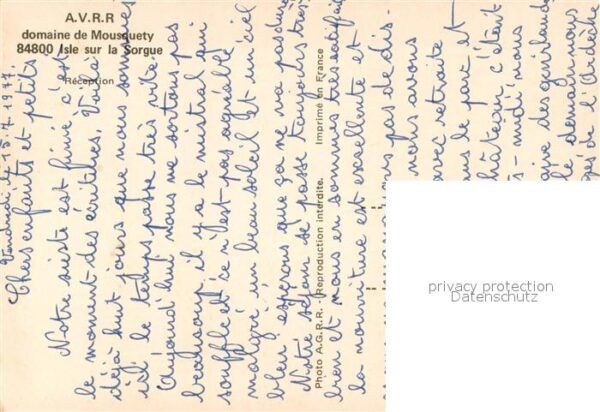 A.V.R.R
domaine de Mousquety
84800 Isle sur la Sorgue
Réception
Vendredi 15.7.1977
Chers enfants et petits
Notre sieste est finie c'est
le moment des écritures. Voilà
déjà huit jours que nous sommes
ici le temps passe très vite.
Aujourd'hui nous ne sortons pas
beaucoup il y a le mistral qui
souffle et ce n'est pas agréable
malgré un beau soleil et un ciel
bleu espérons que ça ne va pas durer
Notre séjour se passe toujours très
bien et nous en sommes très satisfaits
la nourriture est excellente et
pas de dis-
nous avons
avec retraite
par et
château c'était
midi nous
faire des guirlandes
demain nous
de l'Ardèche
Photo A.G.R.R. - Reproduction interdite. Imprimé en France
privacy protection
Datenschutz